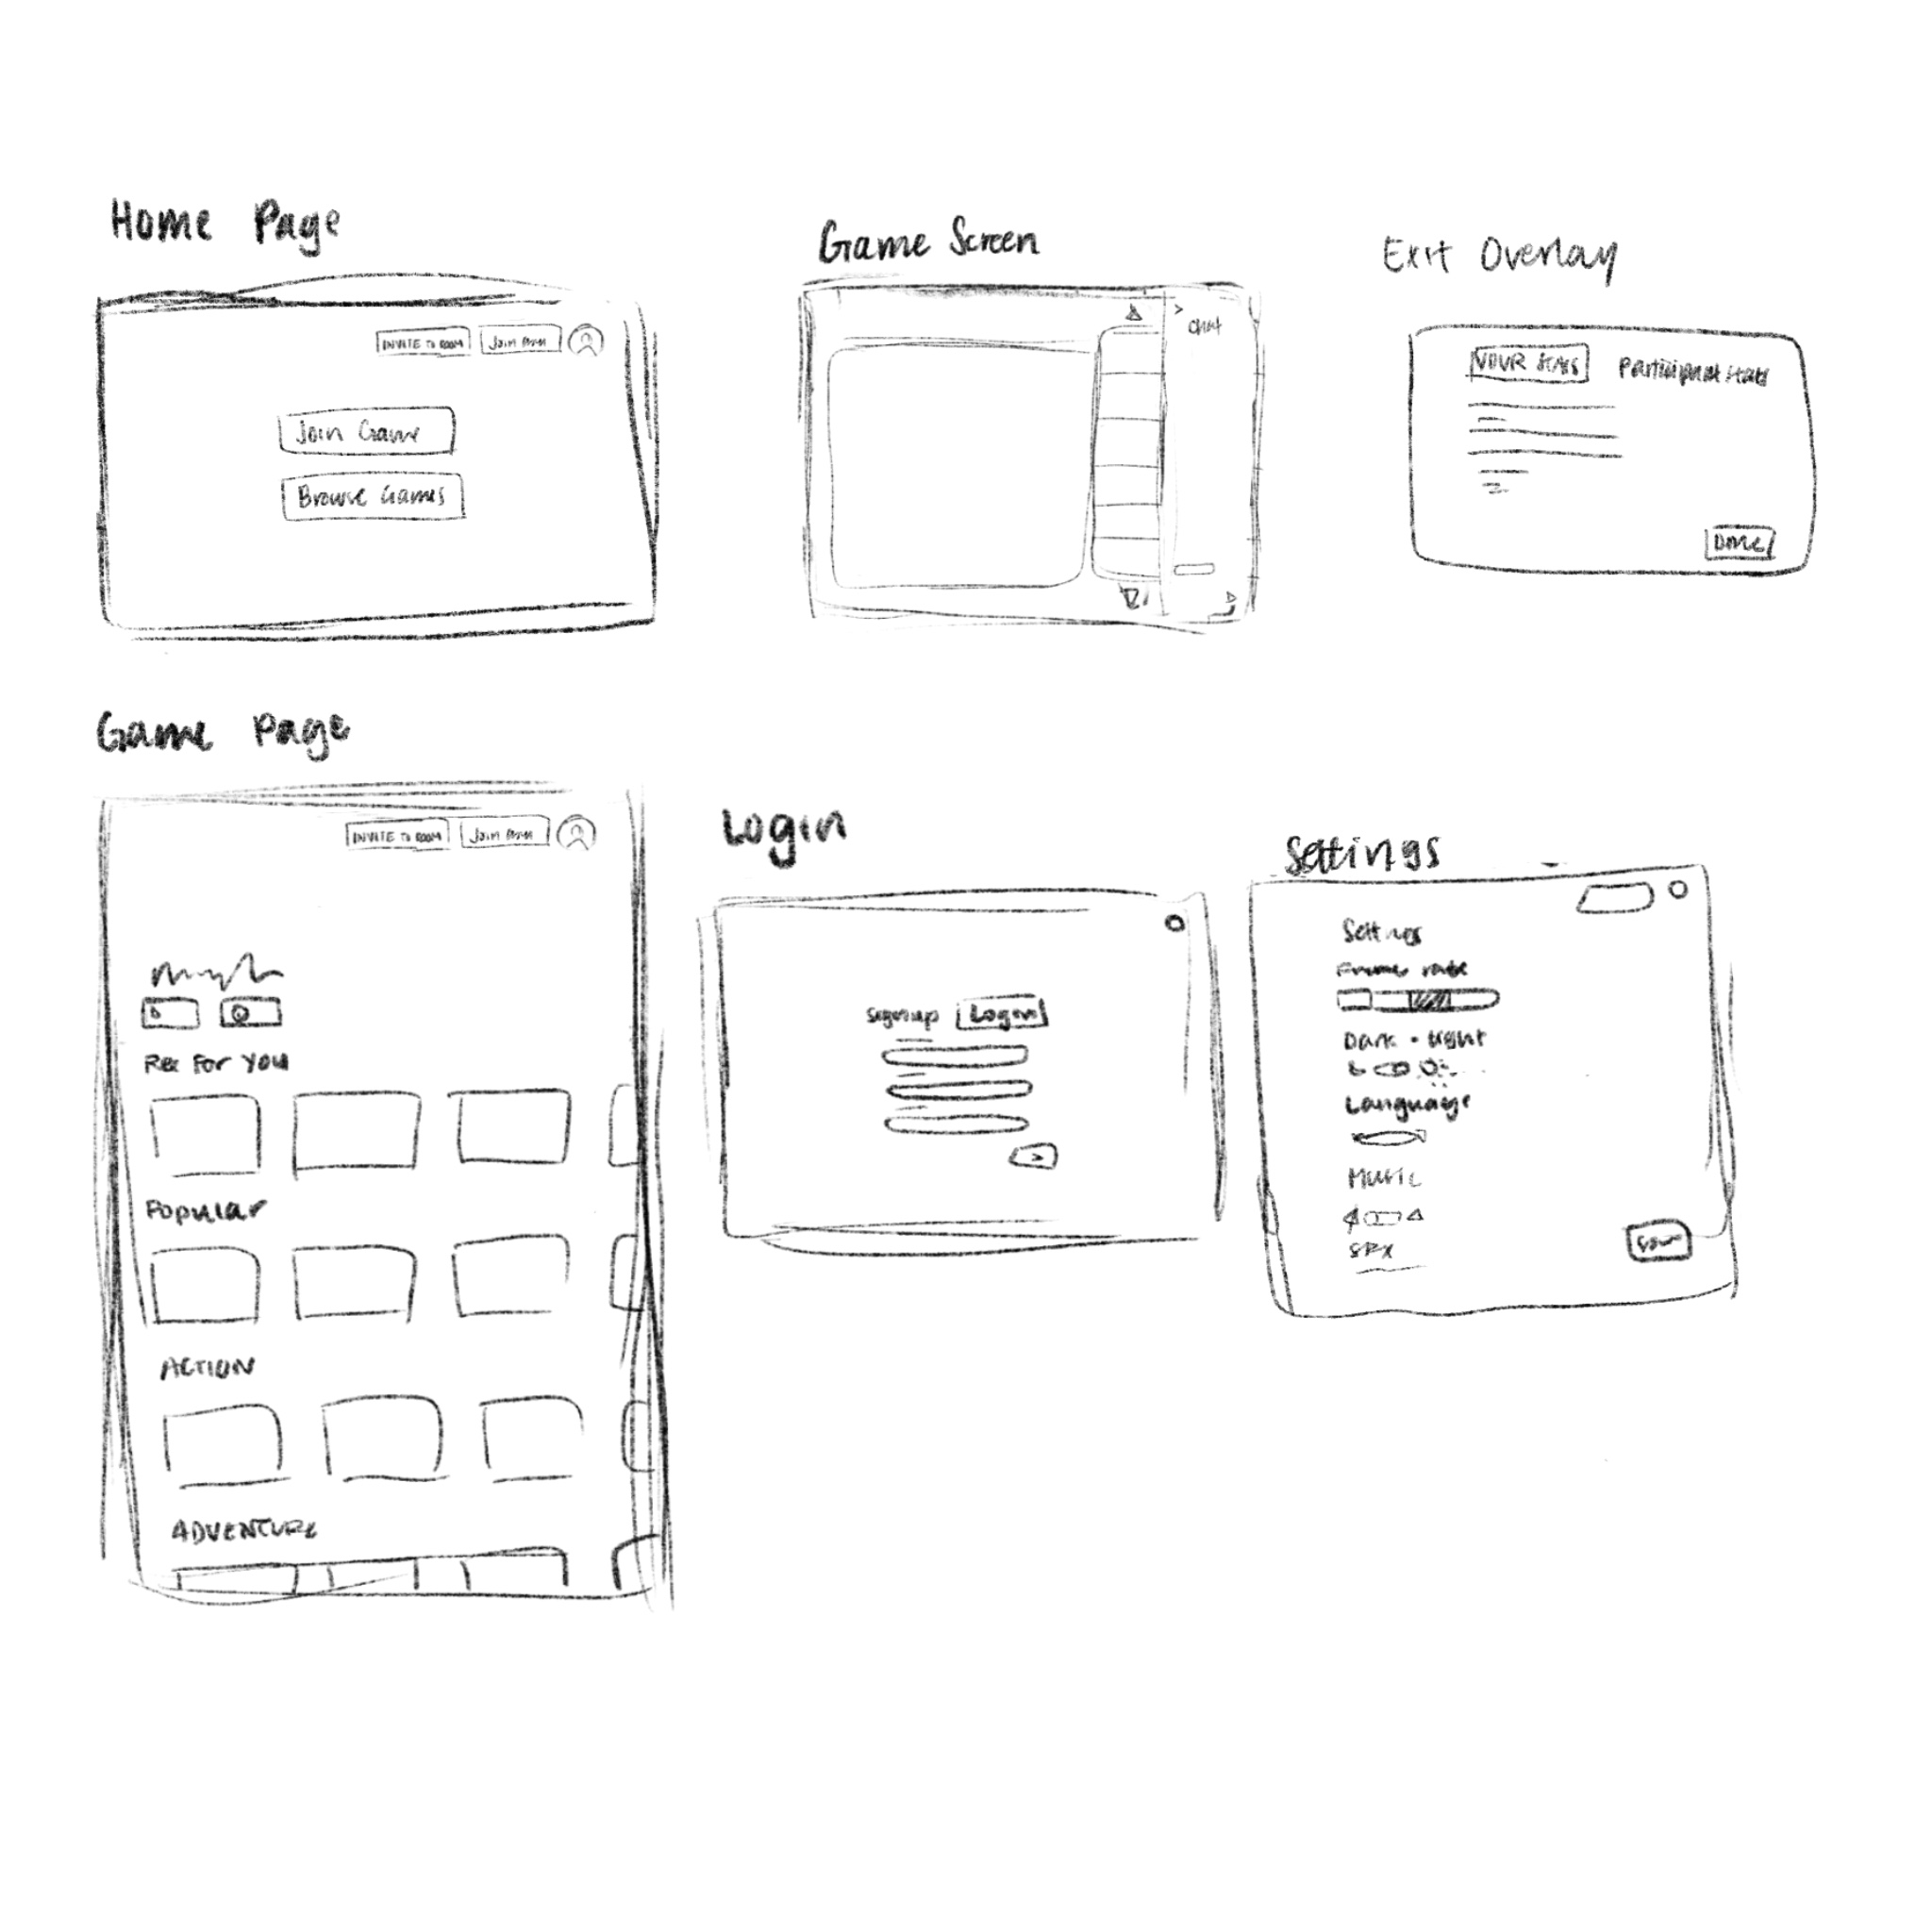 Home Page
INVITE TO ROOM Join Room
Join Game
Browse Games
Game Screen
> Chat
Exit Overlay
YOUR STATS Participant Stats
DONE
Game Page
INVITE TO ROOM Join Room
Rec For You
Popular
ACTION
ADVENTURE
Login
signup Login
>
Settings
Settings
Frame rate
Dark • Light
Language
Music
SFX